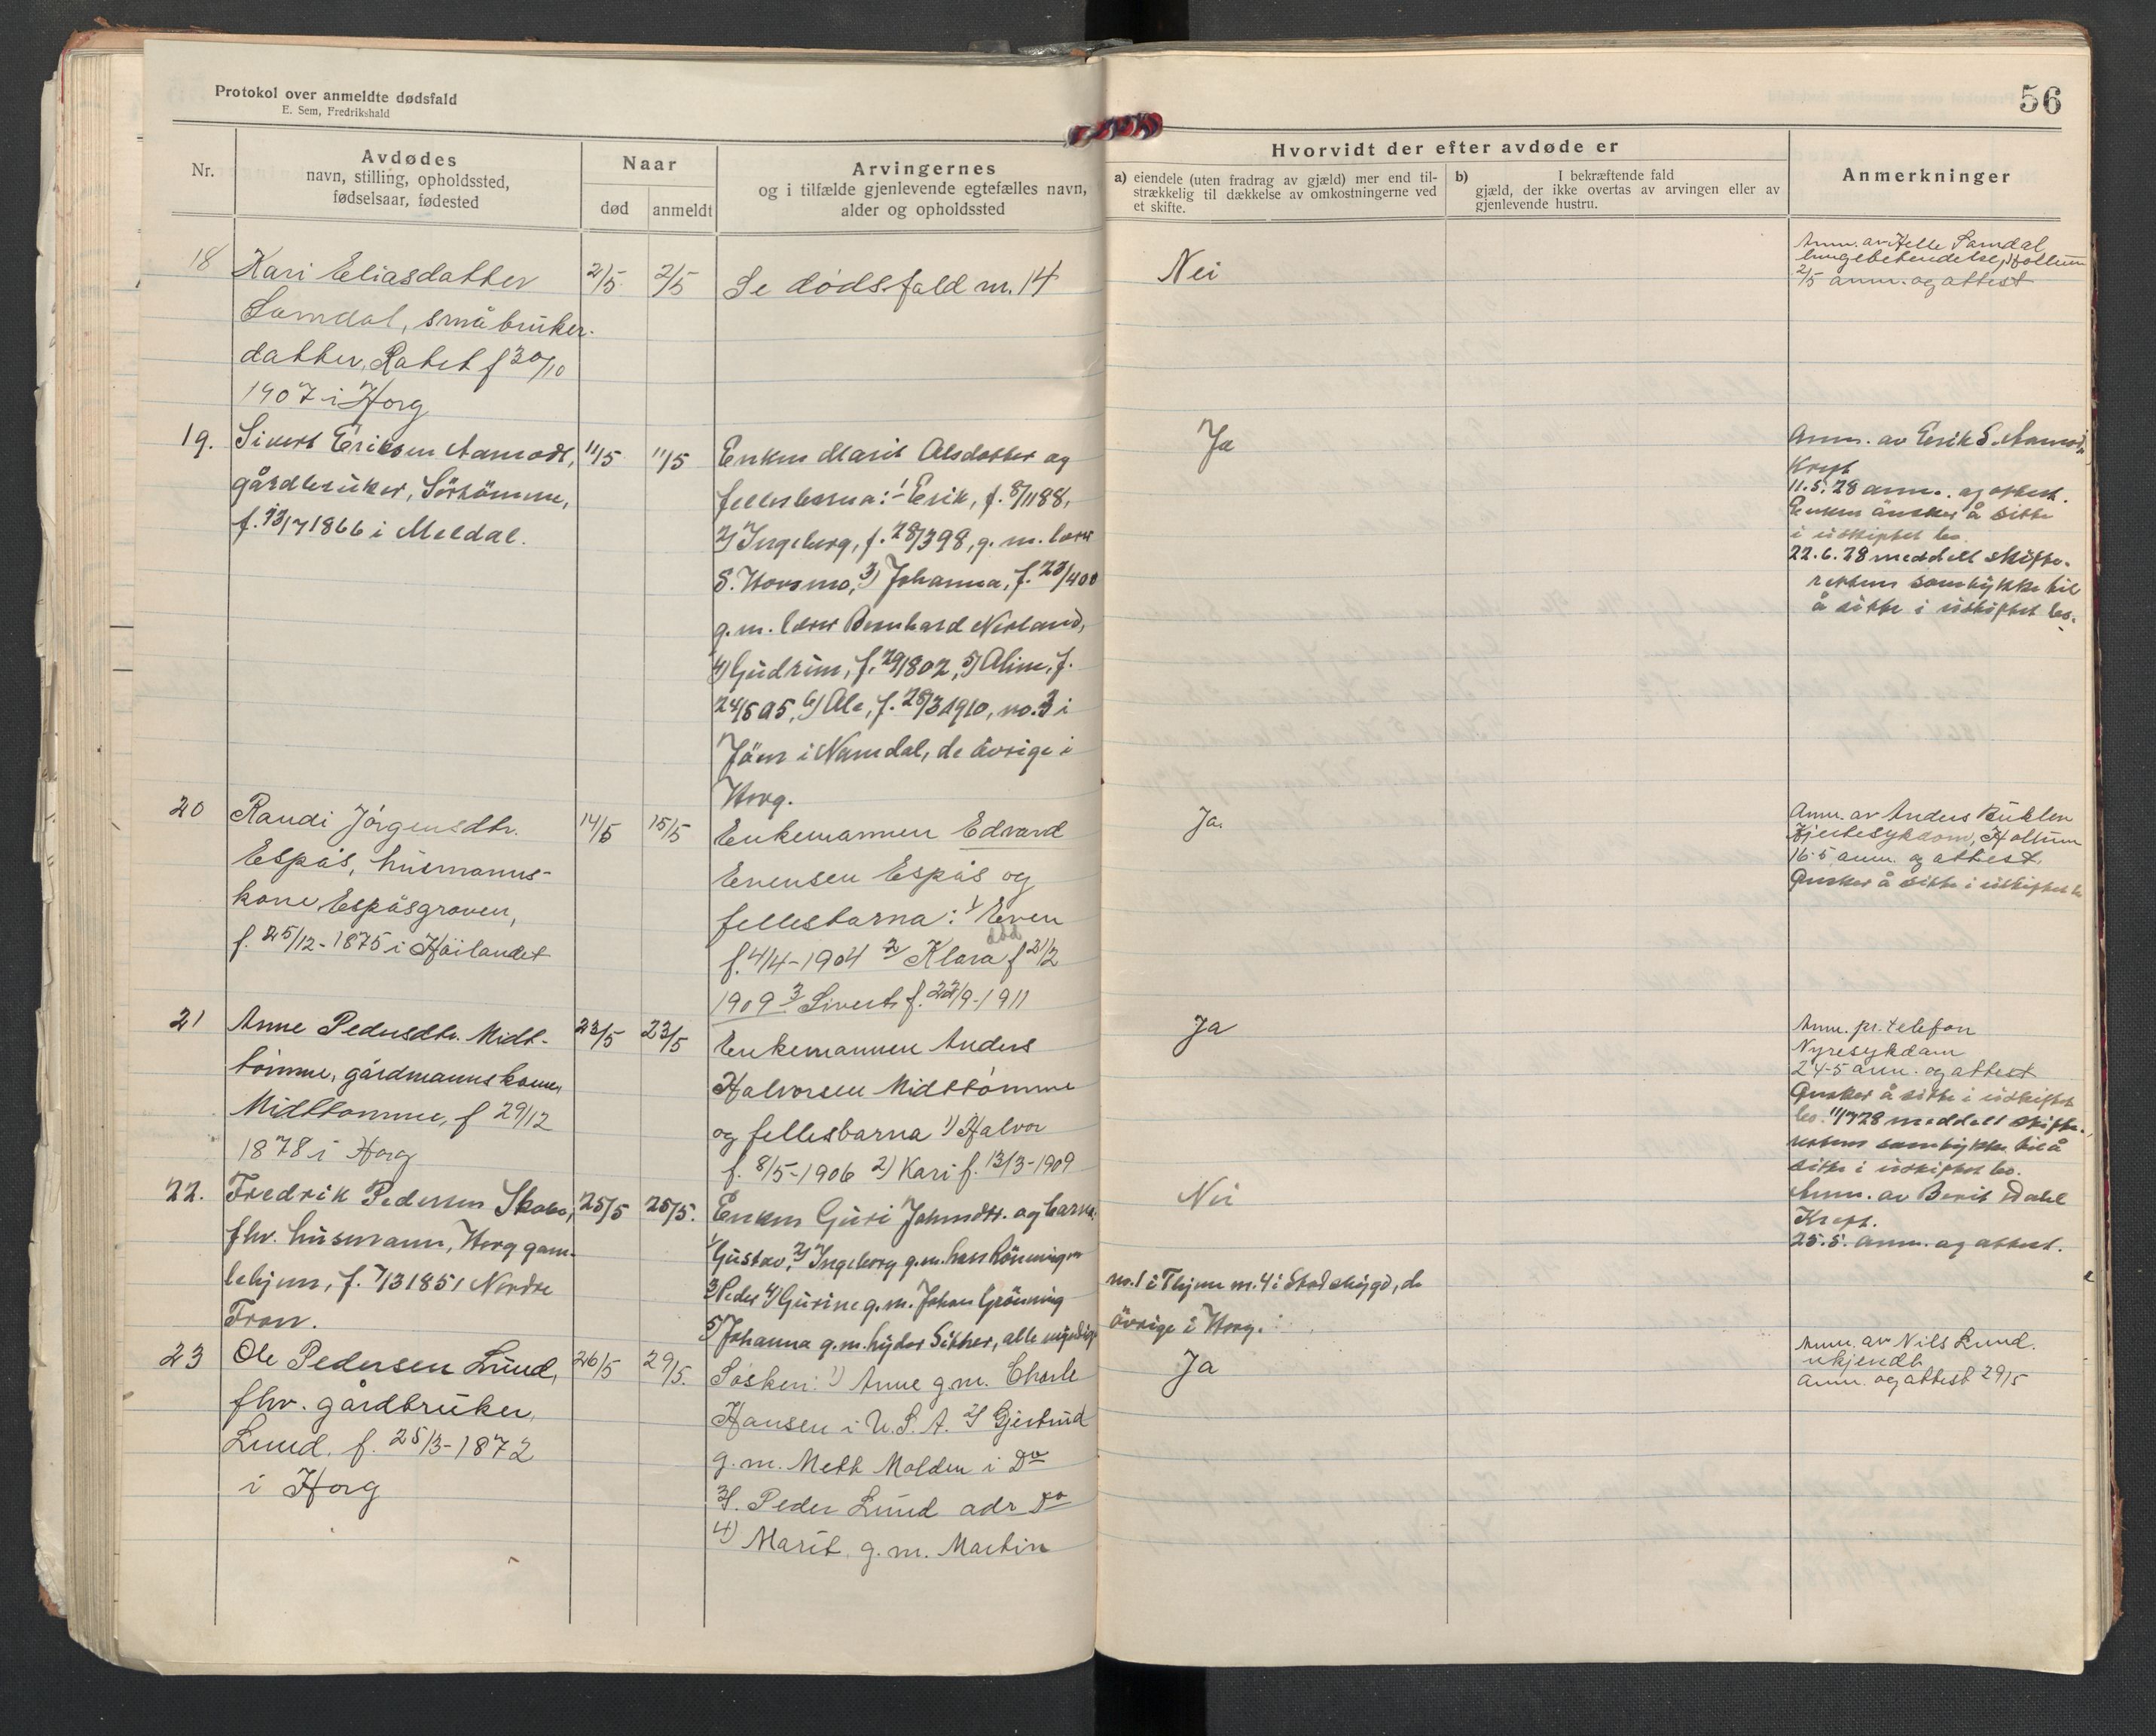 Protokol over anmeldte dødsfald
E. Sem, Fredrikshald
56
Nr.
Avdødes
navn, stilling, opholdssted,
fødselsaar, fødested
Naar
død
anmeldt
Arvingernes
og i tilfælde gjenlevende egtefælles navn,
alder og opholdssted
Hvorvidt der efter avdøde er
a) eiendele (uten fradrag av gjæld) mer end til-
strækkelig til dækkelse av omkostningerne ved
et skifte.
b) I bekræftende fald
gjæld, der ikke overtas av arvingen eller av
gjenlevende hustru.
Anmerkninger
18
Kari Eliasdatter
Samdal, småbruker-
datter, f 30/10
1907 i Horg
2/5
2/5
Se dødsfald nr. 14
Nei
Anm. av Samdal
2/5 anm. og attest
19.
Sivert Eriksen Aamodt,
gårdbruker, Sörtömme,
f. 13/7 1866 i Meldal.
11/5
11/5
Enken Marit Olsdatter og
fellesbarna: 1) Erik, f. 8/11 88,
2) Ingeborg, f. 28/3 98, g. m. lærer
S. Horsmo, 3) Johanna, f. 23/4 00
g. m. lærer Bernhard Nesland,
4) Gudrun, f. 29/8 02, 5) Oline, f.
24/5 05, 6) Ole, f. 28/3 1910, no. 3 i
i Namdal, de övrige i
Horg.
Ja
Anm. av Erik S. Aamodt
Kreft
11.5.28 anm. og attest.
Enken ønsker å sitte
i uskiftet bo.
22.6.28 meddelt skifte-
rettens samtykke til
å sitte i uskiftet bo.
20
Randi Jörgensdtr.
Espås, husmanns-
kone Espåsgroven,
f. 25/12-1875 i Höilandet
14/5
15/5
Enkemannen Edvard
Evensen Espås og
fellesbarna: 1) Even
f. 4/4-1904 2) Klara f 21/2
død
1909 3) Sivert f. 22/9-1911
Ja.
Anm. av Anders
Hjertesykdom,
16-5 anm. og attest.
Ønsker å sitte i uskiftet bo
21
Anne Pedersdtr. Midt-
tömme, gårdmannskone,
Midttömme, f 29/12
1878 i Horg
23/5
23/5
Enkemannen Anders
Halvorsen Midttömme
og fellesbarna 1) Halvor
f. 8/5-1906 2) Kari f. 13/3-1909
Ja
Anm. pr. telefon
Nyresykdam
24-5 anm. og attest
Ønsker å sitte i uskiftet
bo. 11/7 28 meddelt skifte-
rettens samtykke til å
sitte i uskiftet bo.
22.
Fredrik Pedersen
fhv. husmann, Horg gam-
lehjem, f. 7/3 1851 Nordre
Fron.
25/5
25/5.
Enken Guri Johnsdtr. og barna:
1) Gustav, 2) Ingeborg g.m. Rönningen
3) Peder 4) Gurine g.m. Johan Grönning
5) Johanna g.m. alle myndige
no. 1 i nr. 4 i de
övrige i Horg.
Nei
Anm. av Berit Dahl
Kreft.
25.5. anm. og attest.
23
Ole Pedersen Lund,
fhv. gårdbruker,
Lund. f. 25/3-1872
i Horg
26/5
29/5.
Søsken: 1) Anne g.m. Charle
Hansen i U.S.A. 2) Gjertrud
g.m. Molden i Do
3). Peder Lund adr Do
4) Marit, g.m. Martin
Ja
Anm. av Nils Lund.
ukjendt
anm. og attest 29/5